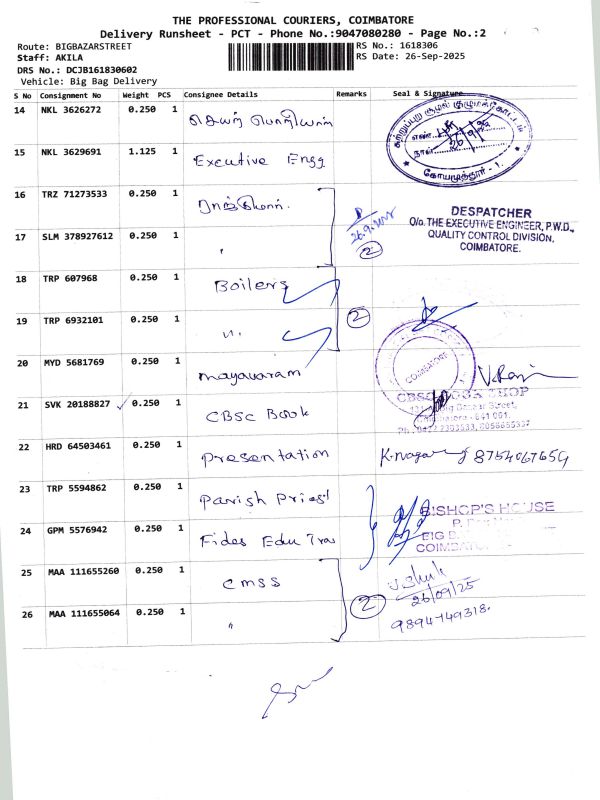 THE PROFESSIONAL COURIERS, COIMBATORE
Delivery Runsheet - PCT - Phone No.:9047080280 - Page No.:2
Route: BIGBAZARSTREET
RS No.: 1618306
Staff: AKILA
RS Date: 26-Sep-2025
DRS No.: DCJB161830602
Vehicle: Big Bag Delivery
S No Consignment No Weight PCS Consignee Details Remarks Seal & Signature
14 NKL 3626272 0.250 1
15 NKL 3629691 1.125 1 Executive Engg
கோயமுத்தூர் - 1.
16 TRZ 71273533 0.250 1
17 SLM 378927612 0.250 1 "
2
DESPATCHER
O/o. THE EXECUTIVE ENGINEER, P.W.D.,
QUALITY CONTROL DIVISION,
COIMBATORE.
18 TRP 607968 0.250 1 Boilers
19 TRP 6932101 0.250 1 "
2
20 MYD 5681769 0.250 1 mayavaram
COIMBATORE
21 SVK 20188827 0.250 1 CBSC Book
CBSC BOOK SHOP
22 HRD 64503461 0.250 1 Presentation
8754067654
23 TRP 5594862 0.250 1 Parish Priest
24 GPM 5576942 0.250 1 Fides Edu Tras
BISHOP'S HOUSE
25 MAA 111655260 0.250 1 CMSS
26 MAA 111655064 0.250 1 "
2
26/09/25
9894749318.